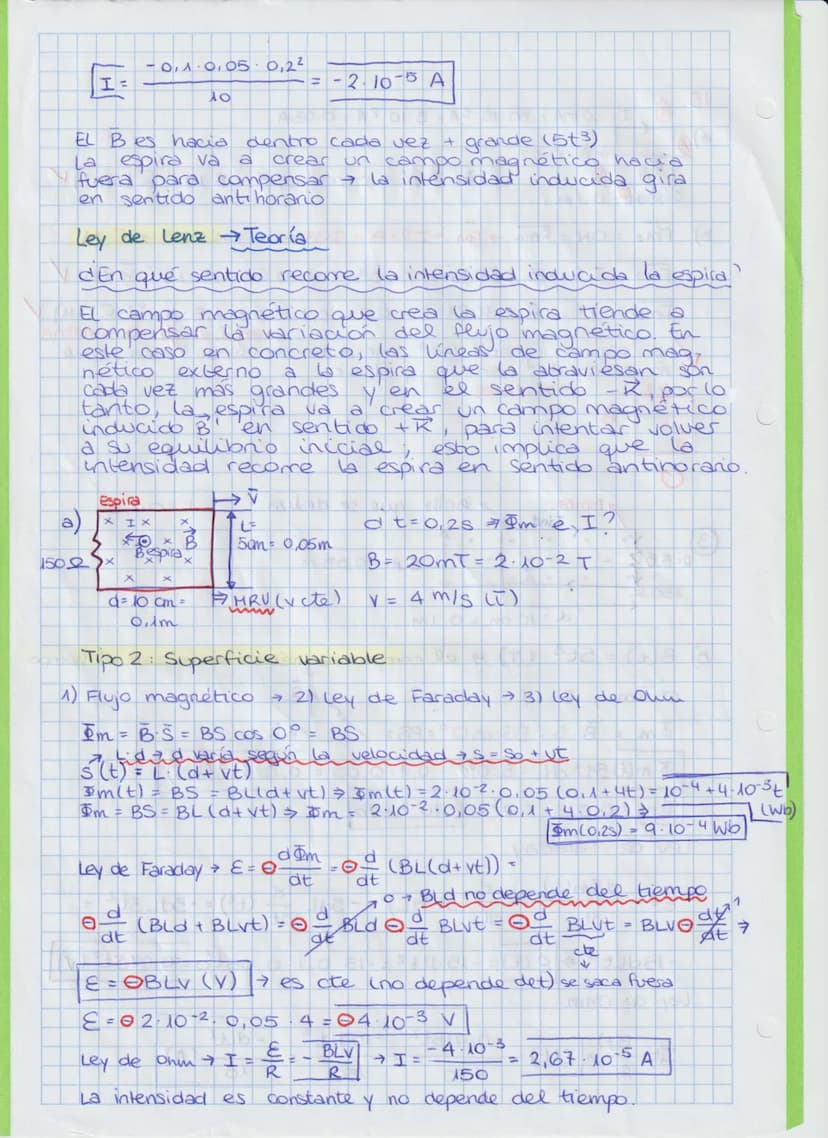 I = -0,1·0,05·0,2² / 10 = -2·10⁻⁵ A
El B̄ es hacia dentro cada vez + grande (5t³)
La espira va a crear un campo magnético hacia
fuera para compensar → la intensidad inducida gira
en sentido antihorario
Ley de Lenz → Teoría
¿En qué sentido recorre la intensidad inducida la espira?
El campo magnético que crea la espira tiende a
compensar la variación del flujo magnético. En
este caso en concreto, las líneas de campo mag-
nético externo a la espira que la atraviesan son
cada vez más grandes y en el sentido -K⃗, por lo
tanto, la espira va a crear un campo magnético
inducido B⃗' en sentido +K⃗, para intentar volver
a su equilibrio inicial; esto implica que la
intensidad recorre la espira en sentido antihorario.
Espira → V̄
a) x I x x L= ¿ t=0,2s → Φm, ε, I?
x B⃗ 5cm = 0,05m
150Ω x Bespira x x B = 20mT = 2·10-2 T
x x
d=10 cm = → MRU (v cte) V = 4 m/s (ī)
0,1m
Tipo 2: Superficie variable
1) Flujo magnético → 2) Ley de Faraday → 3) Ley de Ohm
Φm = B̄·S̄ = BS cos 0º = BS
↗ L·d → d varía según la velocidad → s = s₀ + vt
S(t) = L·(d+vt)
Φm(t) = BS = BL(d+vt) ⇒ Φm(t) = 2·10-2·0,05 (0,1+4t) = 10-4+4·10-3t
Φm = BS = BL (d+vt) ⇒ Φm = 2·10-2·0,05 (0,1 + 4·0,2) ⇒ (Wb)
Φm(0,2s) = 9·10-4 Wb
Ley de Faraday → ε = - dΦm/dt = - d/dt (BL(d+vt)) =
0 → BLd no depende del tiempo
- d/dt (BLd + BLvt) = - d/dt BLd - d/dt BLvt = - d/dt BLvt = BLV - dt/dt ¹ ⇒
cte
ε = -BLV (V) → es cte (no depende de t) se saca fuera
ε = - 2·10-2·0,05·4 = -4·10-3 V
Ley de Ohm → I = ε/R = - BLV/R → I = -4·10-3 / 150 = 2,67·10-5 A
La intensidad es constante y no depende del tiempo.